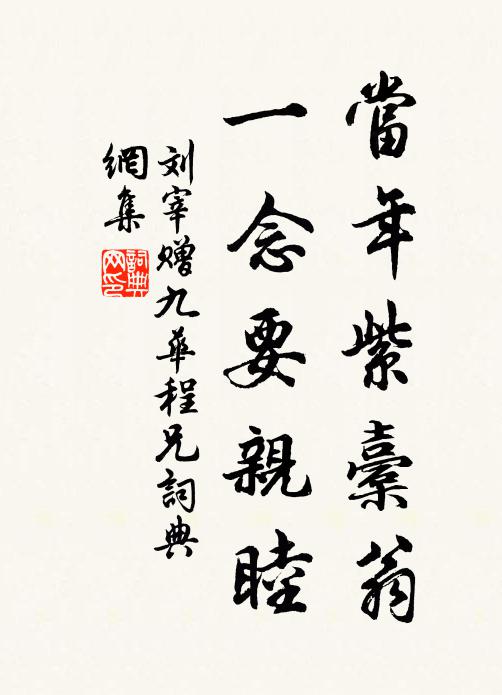 當年紫橐翁
一念要親睦
刘宰赠九華程兄詞典
網集
詞典
网印